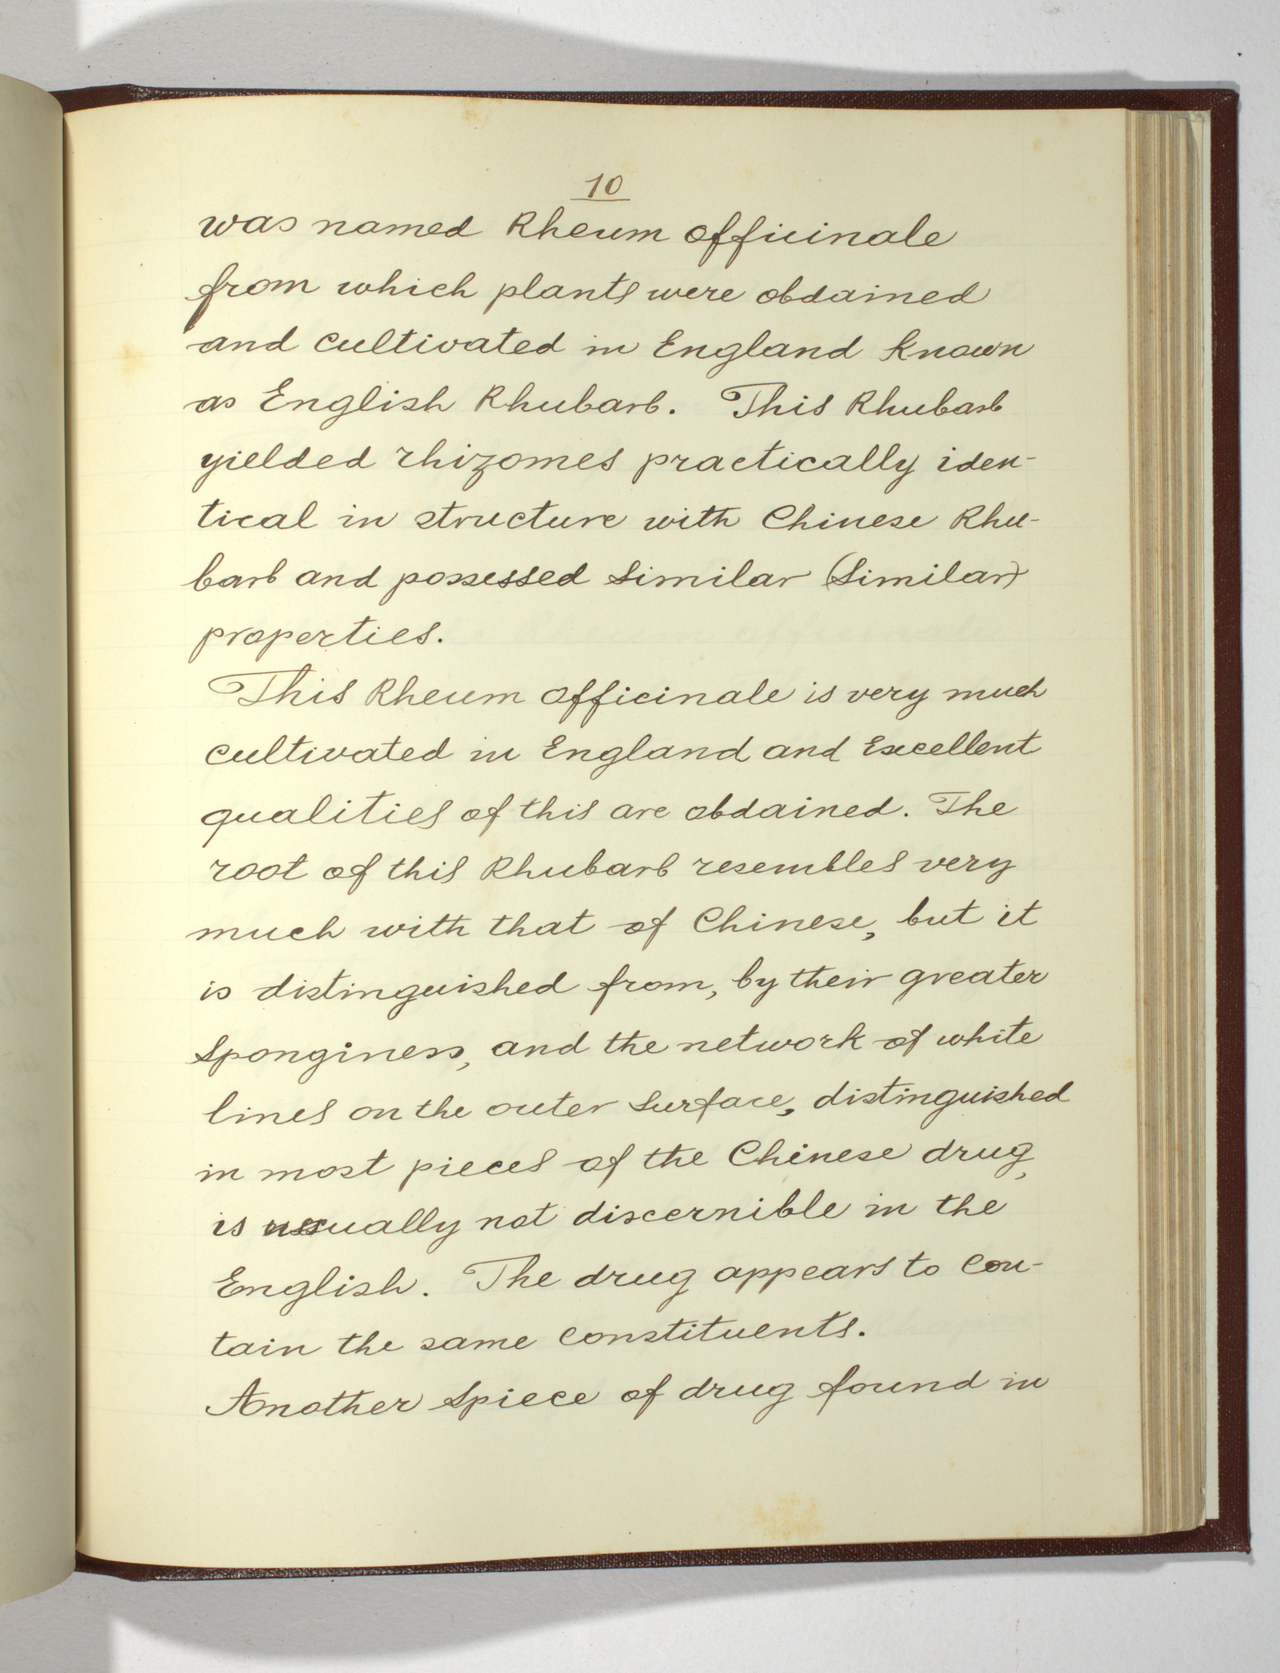 10
was named Rheum officinale
from which plants were obdained
and cultivated in England known
as English Rhubarb. This Rhubarb
yielded rhizomes practically iden-
tical in structure with Chinese Rhu-
barb and possessed similar (similar)
properties.
This Rheum officinale is very much
cultivated in England and Excellent
qualities of this are obdained. The
root of this Rhubarb resembles very
much with that of Chinese, but it
is distinguished from, by their greater
sponginess, and the network of white
lines on the outer surface, distinguished
in most pieces of the Chinese drug,
is ususually not discernible in the
English. The drug appears to con-
tain the same constituents.
Another spiece of drug found in